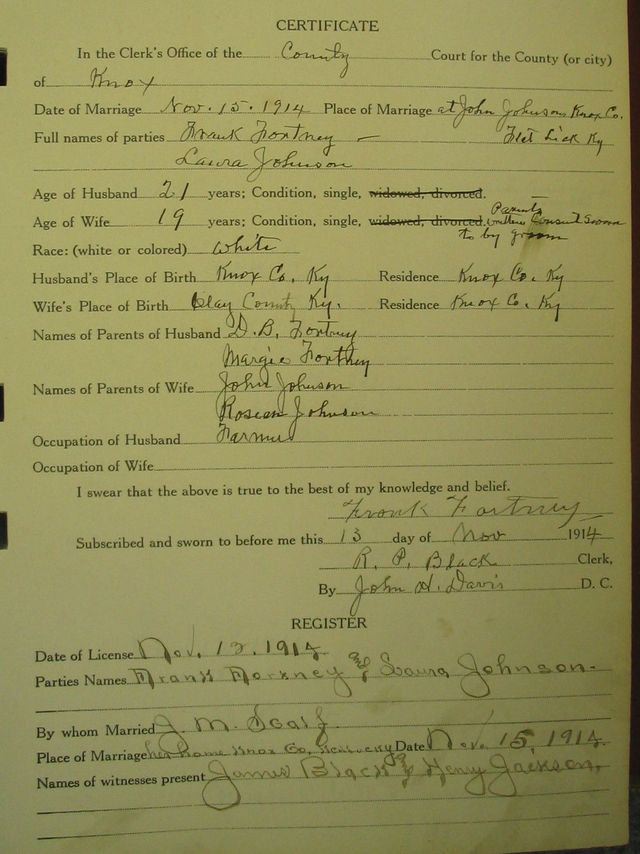 CERTIFICATE
In the Clerk's Office of the County Court for the County (or city)
of Knox
Date of Marriage Nov. 15. 1914 Place of Marriage at John Johnsons Knox Co.
Full names of parties Frank Fortney – Flat Lick Ky
Laura Johnson
Age of Husband 21 years; Condition, single, widowed, divorced.
Age of Wife 19 years; Condition, single, widowed, divorced. Parents written Consent Sworn
to by groom
Race: (white or colored) White
Husband's Place of Birth Knox Co. Ky Residence Knox Co. Ky
Wife's Place of Birth Clay County Ky. Residence Knox Co. Ky
Names of Parents of Husband D. B. Fortney
Margie Fortney
Names of Parents of Wife John Johnson
Rosean Johnson
Occupation of Husband Farmer
Occupation of Wife
I swear that the above is true to the best of my knowledge and belief.
Frank Fortney
Subscribed and sworn to before me this 13 day of Nov 1914
R. P. Black Clerk,
By John H. Davis D. C.
REGISTER
Date of License Nov. 12. 1914
Parties Names Frank Fortney & Laura Johnson.
By whom Married J. M. Scalf
Place of Marriage her home Knox Co, Kentucky Date Nov. 15, 1914.
Names of witnesses present James Black & Henry Jackson.